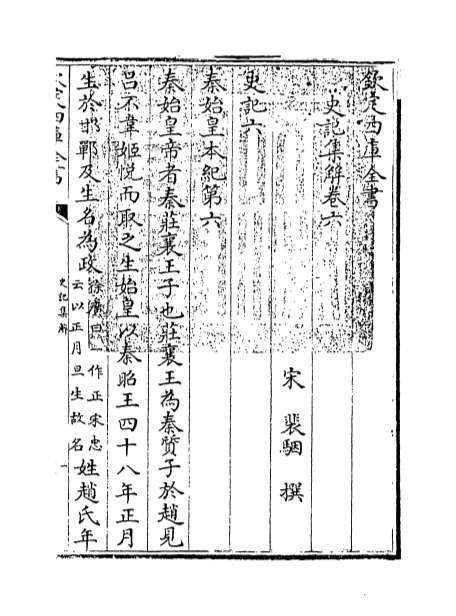 欽定四庫全書
史記集解卷六
宋 裴駰 撰
史記六
秦始皇本紀第六
秦始皇帝者秦莊襄王子也莊襄王為秦質子於趙見
呂不韋姬悅而取之生始皇以秦昭王四十八年正月
生於邯鄲及生名為政徐廣曰一作正宋忠云以正月旦生故名姓趙氏年
欽定四庫全書
史記集解
一